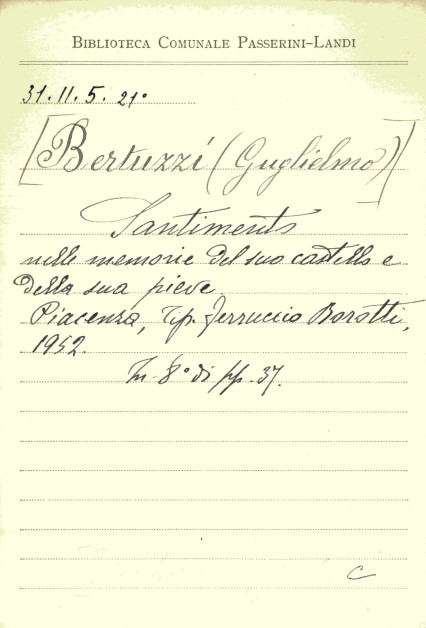 BIBLIOTECA COMUNALE PASSERINI-LANDI
31.II.5.21°
[Bertuzzi (Guglielmo)]
Santimento
nelle memorie del suo castello e
della sua pieve
Piacenza, Tip. Ferruccio Borotti,
1952.
In 8° di pp. 37.
C